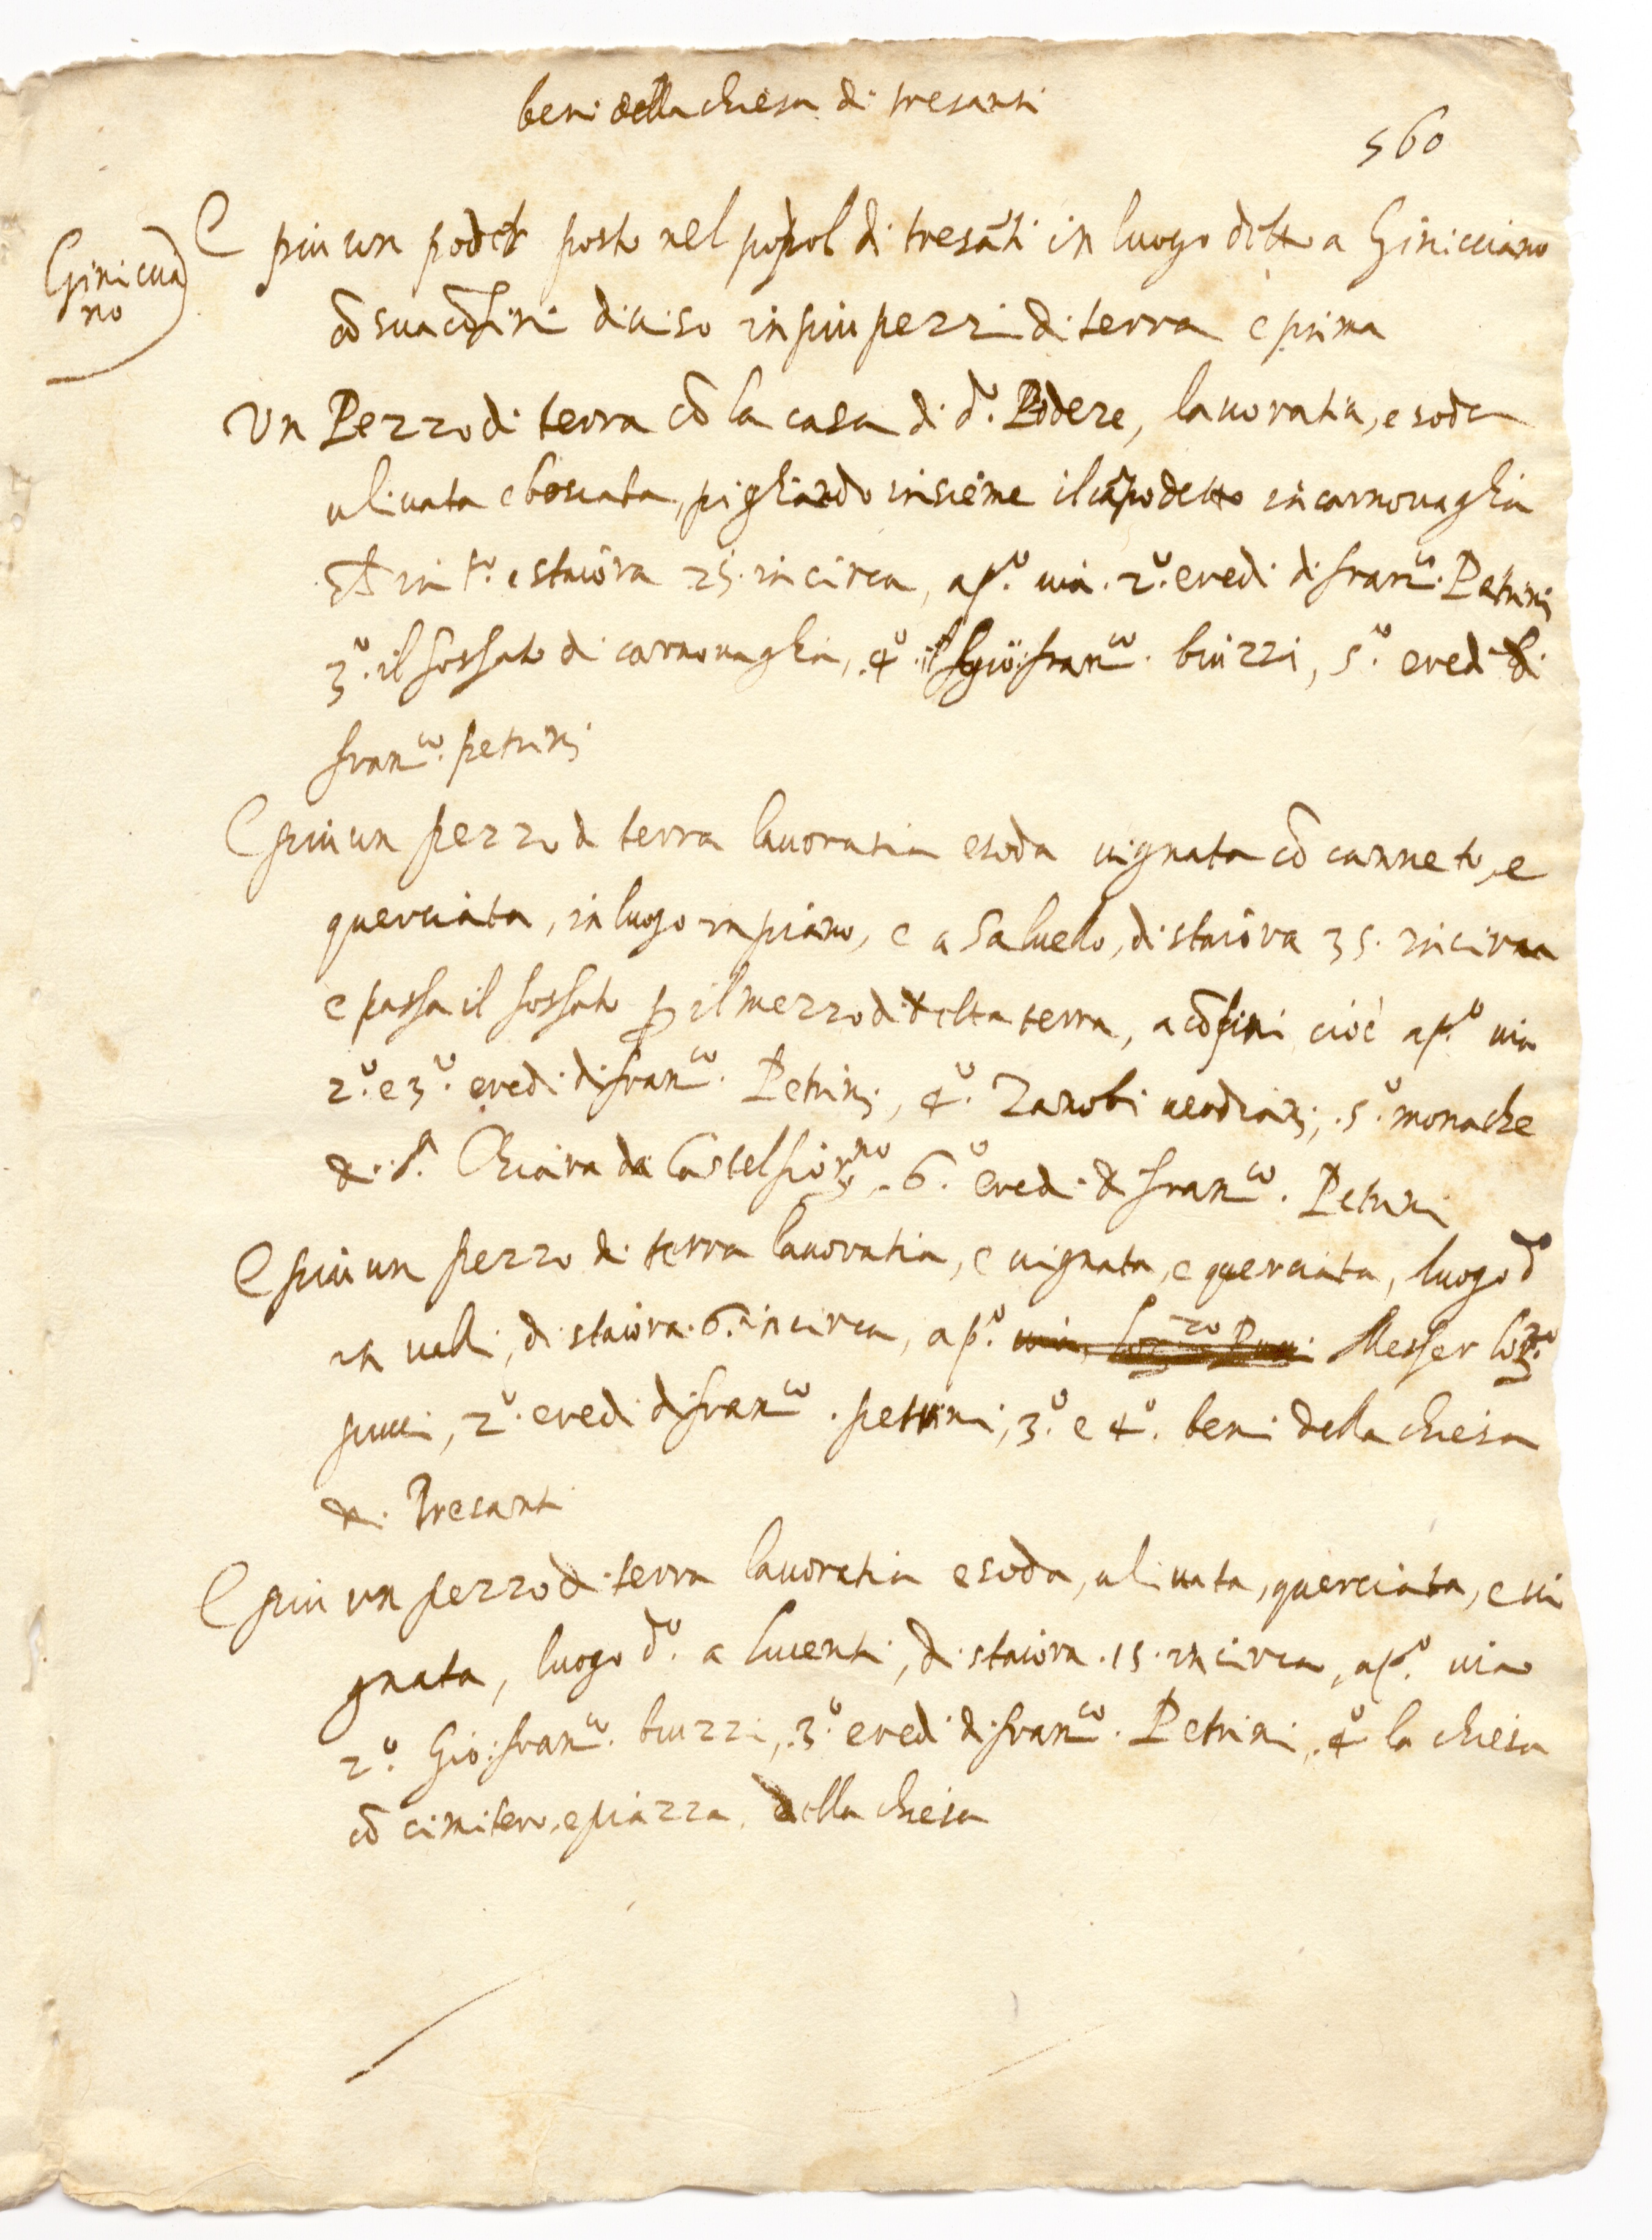 beni della chiesa di tresanti
560
Giniccia
no
E piu un poder posto nel popol di tresāti in luogo detto a Ginicciano
cō sua cōfini diuiso in piu pezzi di terra e prima
Un Pezzo di terra cō la casa di d.º Podere, lauoratia, e soda
uliuata e boscata, pigliando insieme il cāpo detto in carnouaglia
in t.º e staiora 25. in circa, a p.º uia. 2.º eredi di fran.co Petrini
3.º il fossato di carnouaglia, 4.º Gio: fran.co biuzzi, 5.º eredi di
fran.co petrini
E piu un pezzo di terra lauoratia e soda uignata cō canneto, e
querciata, in luogo in piano, e a Saluello, di staiora 35. in circa
e passa il fossato p il mezzo di detta terra, a cōfini cioè a p.º uia
2.º e 3.º eredi di fran.co Petrini, 4.º Zanobi, 5.º monache
di S.ª Chiara da Castelfior.no, 6.º eredi di fran.co Petrini
E piu un pezzo di terra lauoratia, e uignata, e querciata, luogo d.º
in ualli, di staiora 6. in circa, a p.º uia, Lor.zo Pucci Messer Lor.zo
pucci, 2.º eredi di fran.co petrini, 3.º e 4.º beni della chiesa
di Tresanti
E piu un pezzo di terra lauoratia e soda, uliuata, querciata, e ui
gnata, luogo d.º a lucenti, di staiora 15. in circa, a p.º uia
2.º Gio: fran.co biuzzi, 3.º eredi di fran.co Petrini, 4.º la chiesa
cō cimitero, e piazza della chiesa